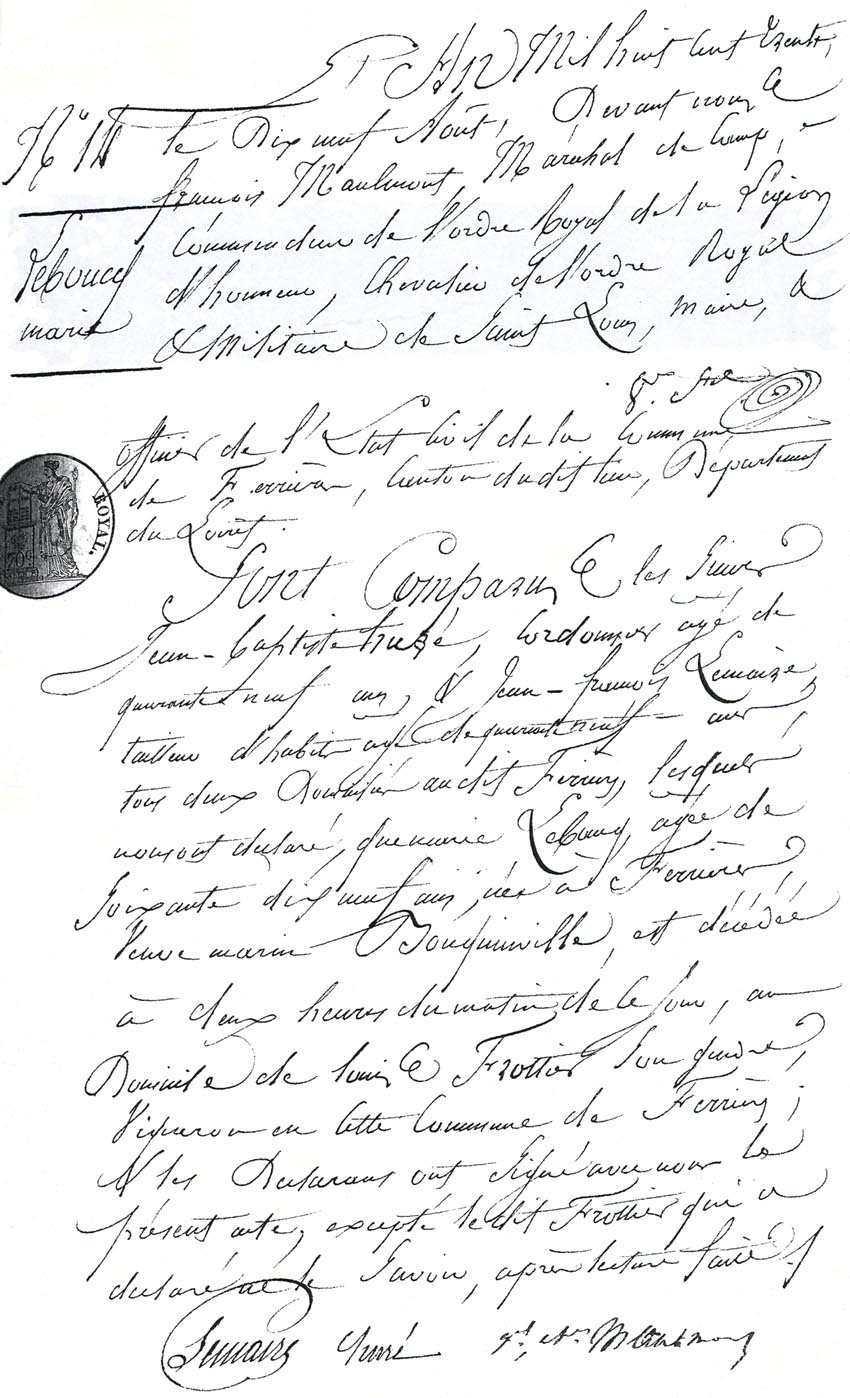 L'An Mil huit cent trente,
le Dix neuf Août, Devant nous
françois Maulmont, Maréchal de Camp,
Commandeur de l'ordre Royal de la Légion
d'honneur, Chevalier de l'ordre Royal
& Militaire de Saint Louis, maire, &
N.º 14
Leboucq
marie
officier de l'Etat Civil de la Commune
de Ferrières, Canton dudit lieu, Département
du Loiret.
ROYAL.
Sont Comparus les Sieurs
Jean-Baptiste huré, Cordonnier agé de
quarante neuf ans, & Jean-françois Lemaire,
tailleur d'habits agé de quarante neuf ans,
tous deux Domiciliés audit Ferrières, lesquels
nous ont déclaré, que marie Leboucq, agée de
Soixante dix neuf ans, née à Ferrières,
Veuve marin Bouquinville, est décédée
à deux heures du matin de ce Jour, au
Domicile de louis Frottier Son gendre,
Vigneron en Cette Commune de Ferrières;
& les Déclarans ont Signé avec nous le
présent acte, excepté le dit Frottier qui a
déclaré ne le Savoir, après lecture faite.
Lemaire huré